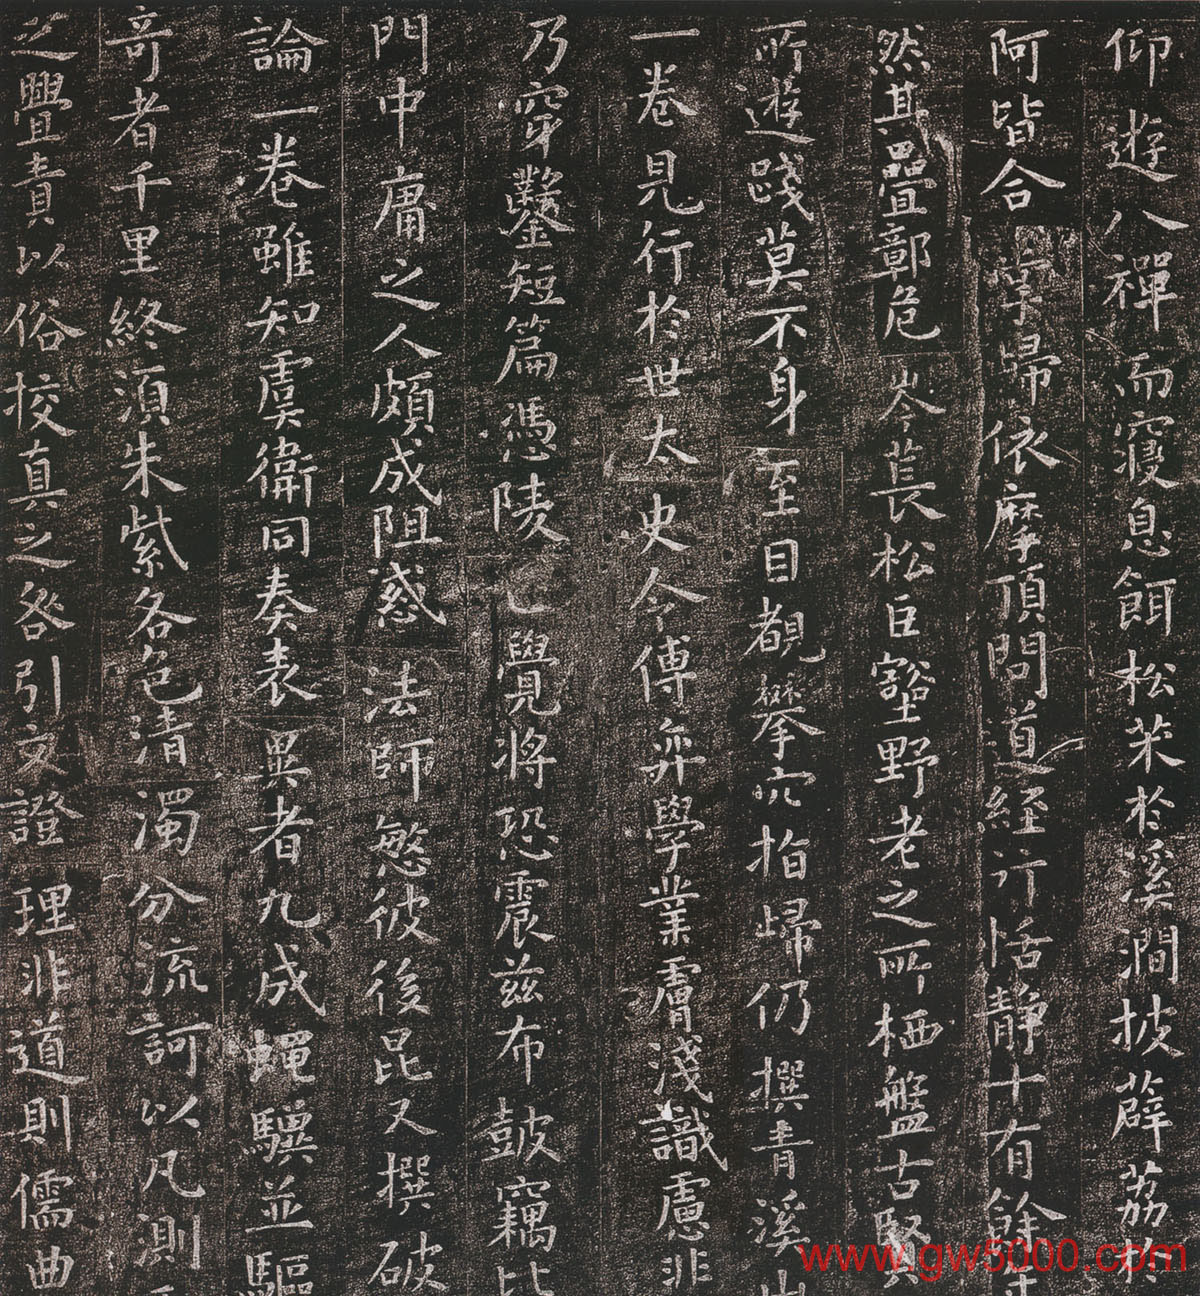 仰遊八禪而寢息餌松茱於溪澗披薜荔於
阿皆合掌歸依摩頂問道經行恬靜十有餘年
然其疊嶂危岑萇松巨壑野老之所栖盤古賢
所遊踐莫不身至目覩攀穴指歸仍撰青溪山
一卷見行於世太史令傅弈學業膚淺識慮非
乃穿鑿短篇憑陵正覺將恐震茲布鼓竊比
門中庸之人頗成阻惑法師愍彼後昆又撰破
論一卷雖知虞衛同奏表異者九成蝇驥並驅
奇者千里終須朱紫各色清濁分流訶以凡測
之亹責以俗挍真之咎引文證理非道則儒曲
www.gw5000.com